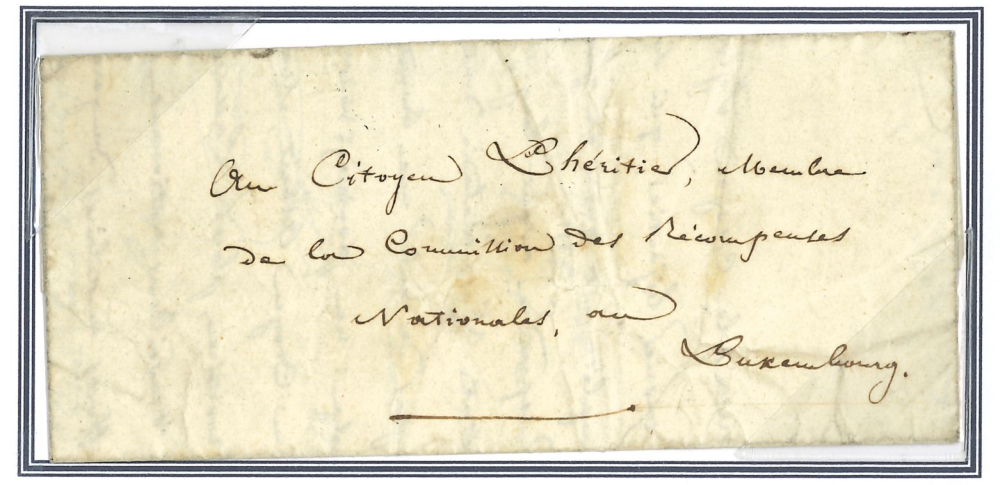 Au Citoyen Lhéritier, Membre
de la Commission des Récompenses
Nationales, au
Luxembourg.